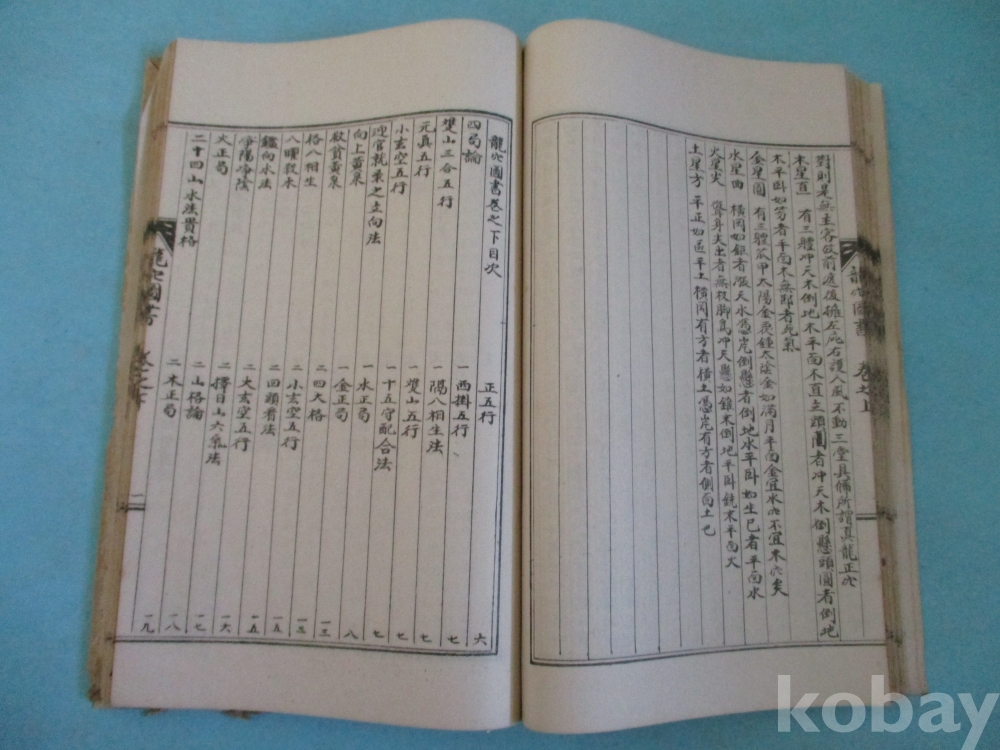 對則是無主客故前應後擁左庇右護入風不動三堂具備所謂眞龍正穴
木星直 有三體冲天木倒地木平面木直立頭圓者冲天木倒懸頭圓者倒地
木平卧如芴者平面木無郎者死氣
金星圓 有三體瓜甲太陽金更鍾太陰金如滿月平面金宜水穴不宜木穴矣
水星曲 橫岡如鉅者漲天水憑岸倒懸者倒地水平卧如生巳者平面水
火星尖 聳身尖出者無枝脚爲冲天懸如錐末倒地平卧銳末平面火
土星方 平正如匡平土橫岡有方者橫土憑岸有方者倒面土也
龍穴圖書 卷之上
龍穴圖書卷之下目次
正五行 六
四局論 一西掛五行 七
雙山三合五行 一隔八相生法 七
元眞五行 一雙山五行 七
小玄空五行 一十五守配合法 七
迎官就祿之立向法 一水正局 八
向上黃泉 一金正局 一三
救貧黃泉 二四大格 一三
格八相生 二小玄空五行 一五
八曜殺水 二四頭看法 一五
鑑向水法 二大玄空五行 一六
淨陽淨陰 二擇日山六氣法 一七
火正局 二山格論 一八
二十四山水法貴格 二木正局 一九
龍穴圖書 卷之下 二
kobay